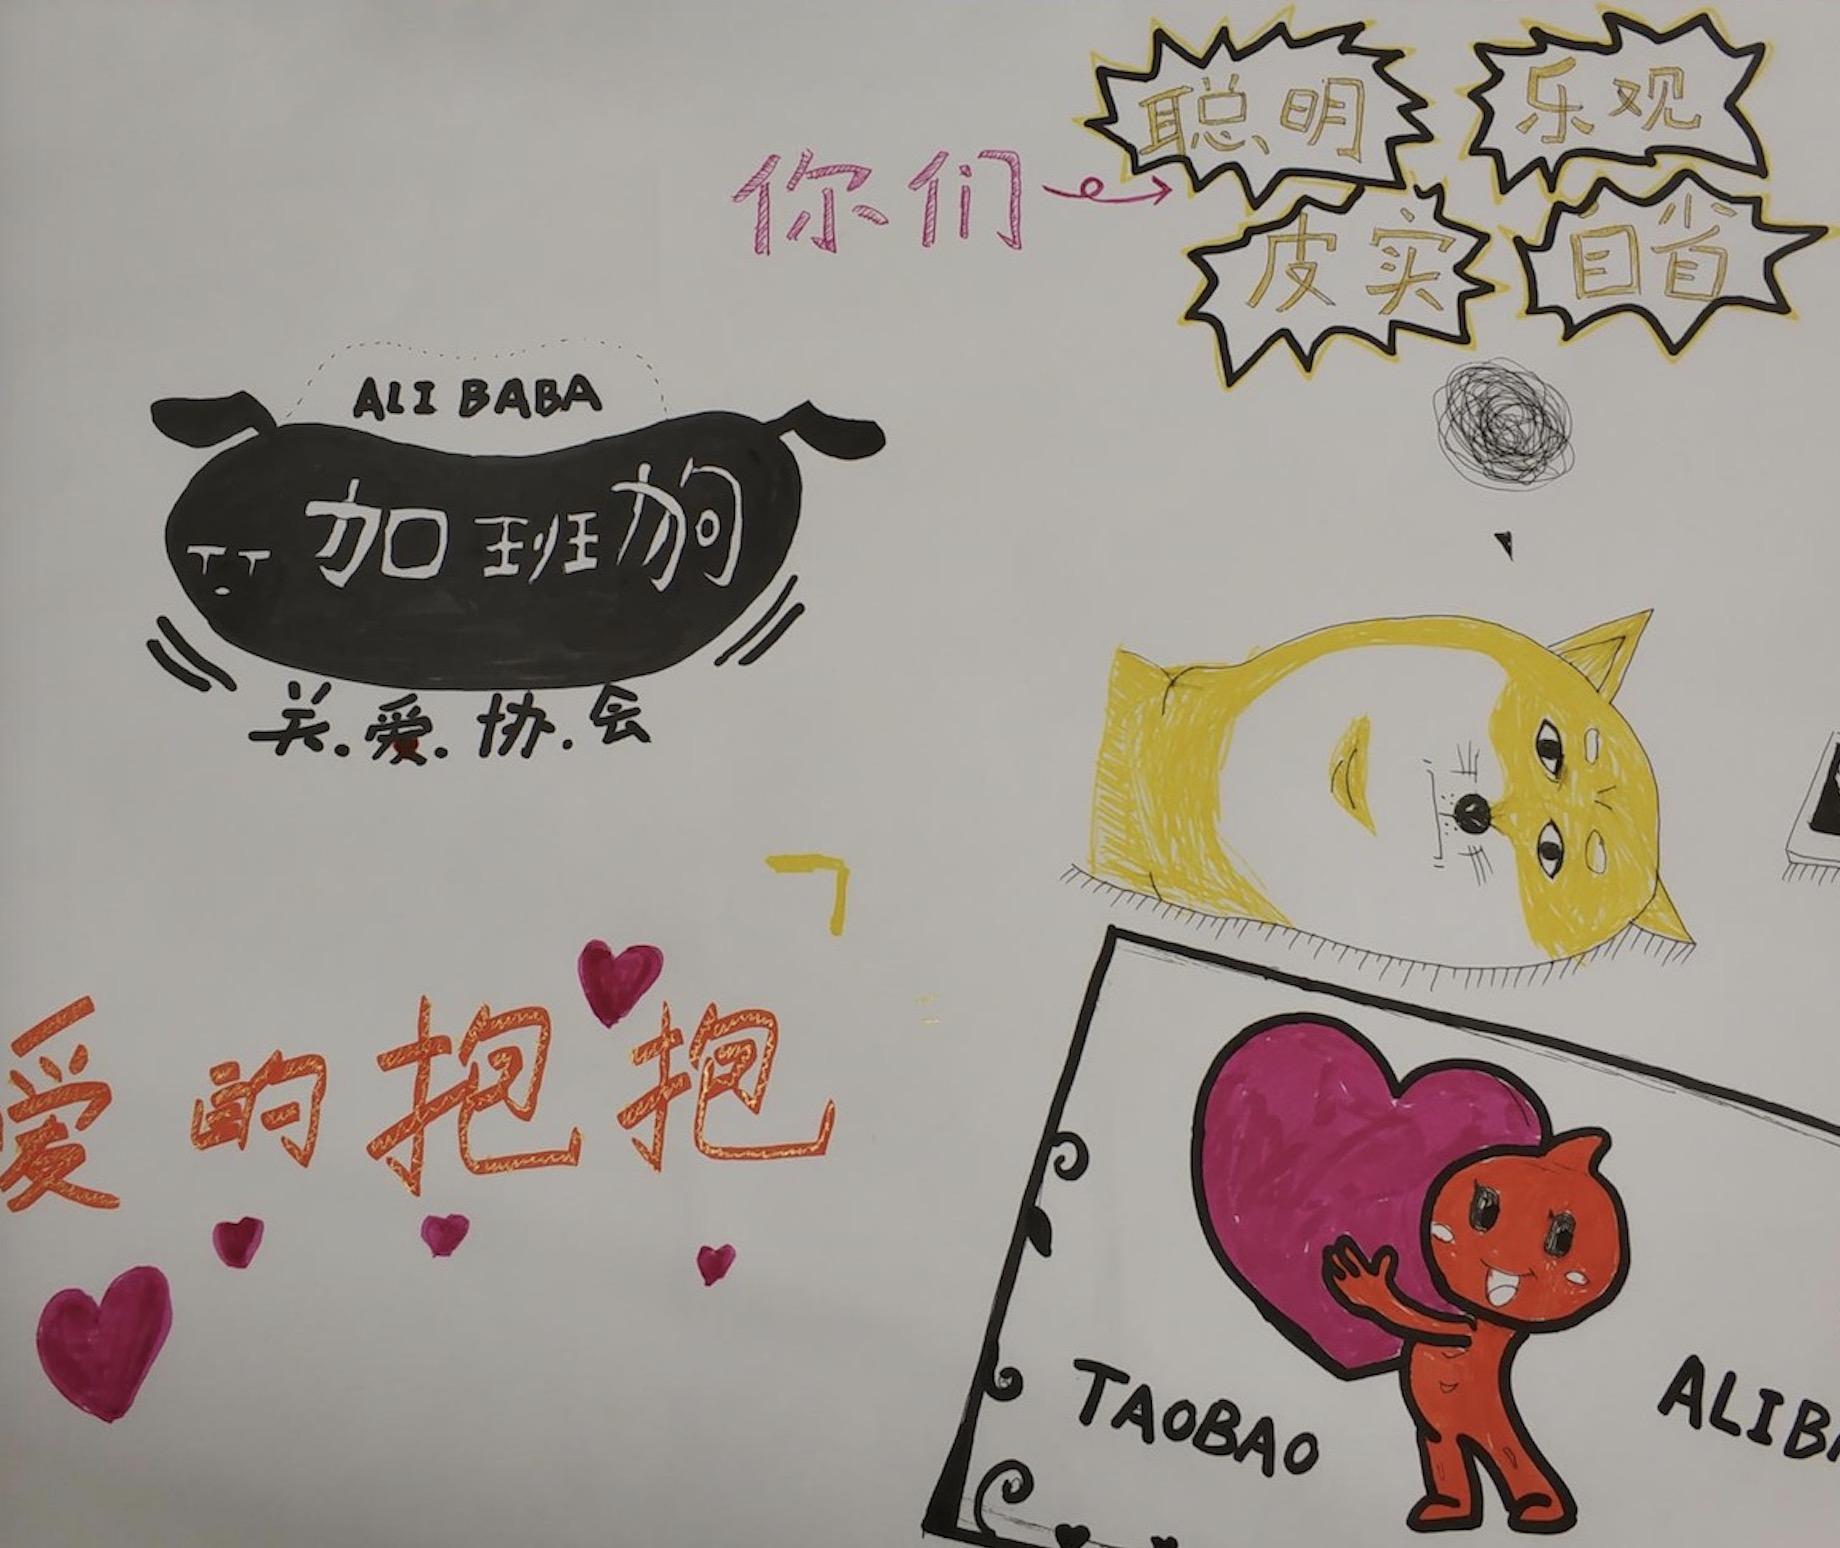 聪明 乐观
你们
皮实 自省
ALI BABA
加班狗
关.爱.协.会
爱的抱抱
TAOBAO
ALIBA